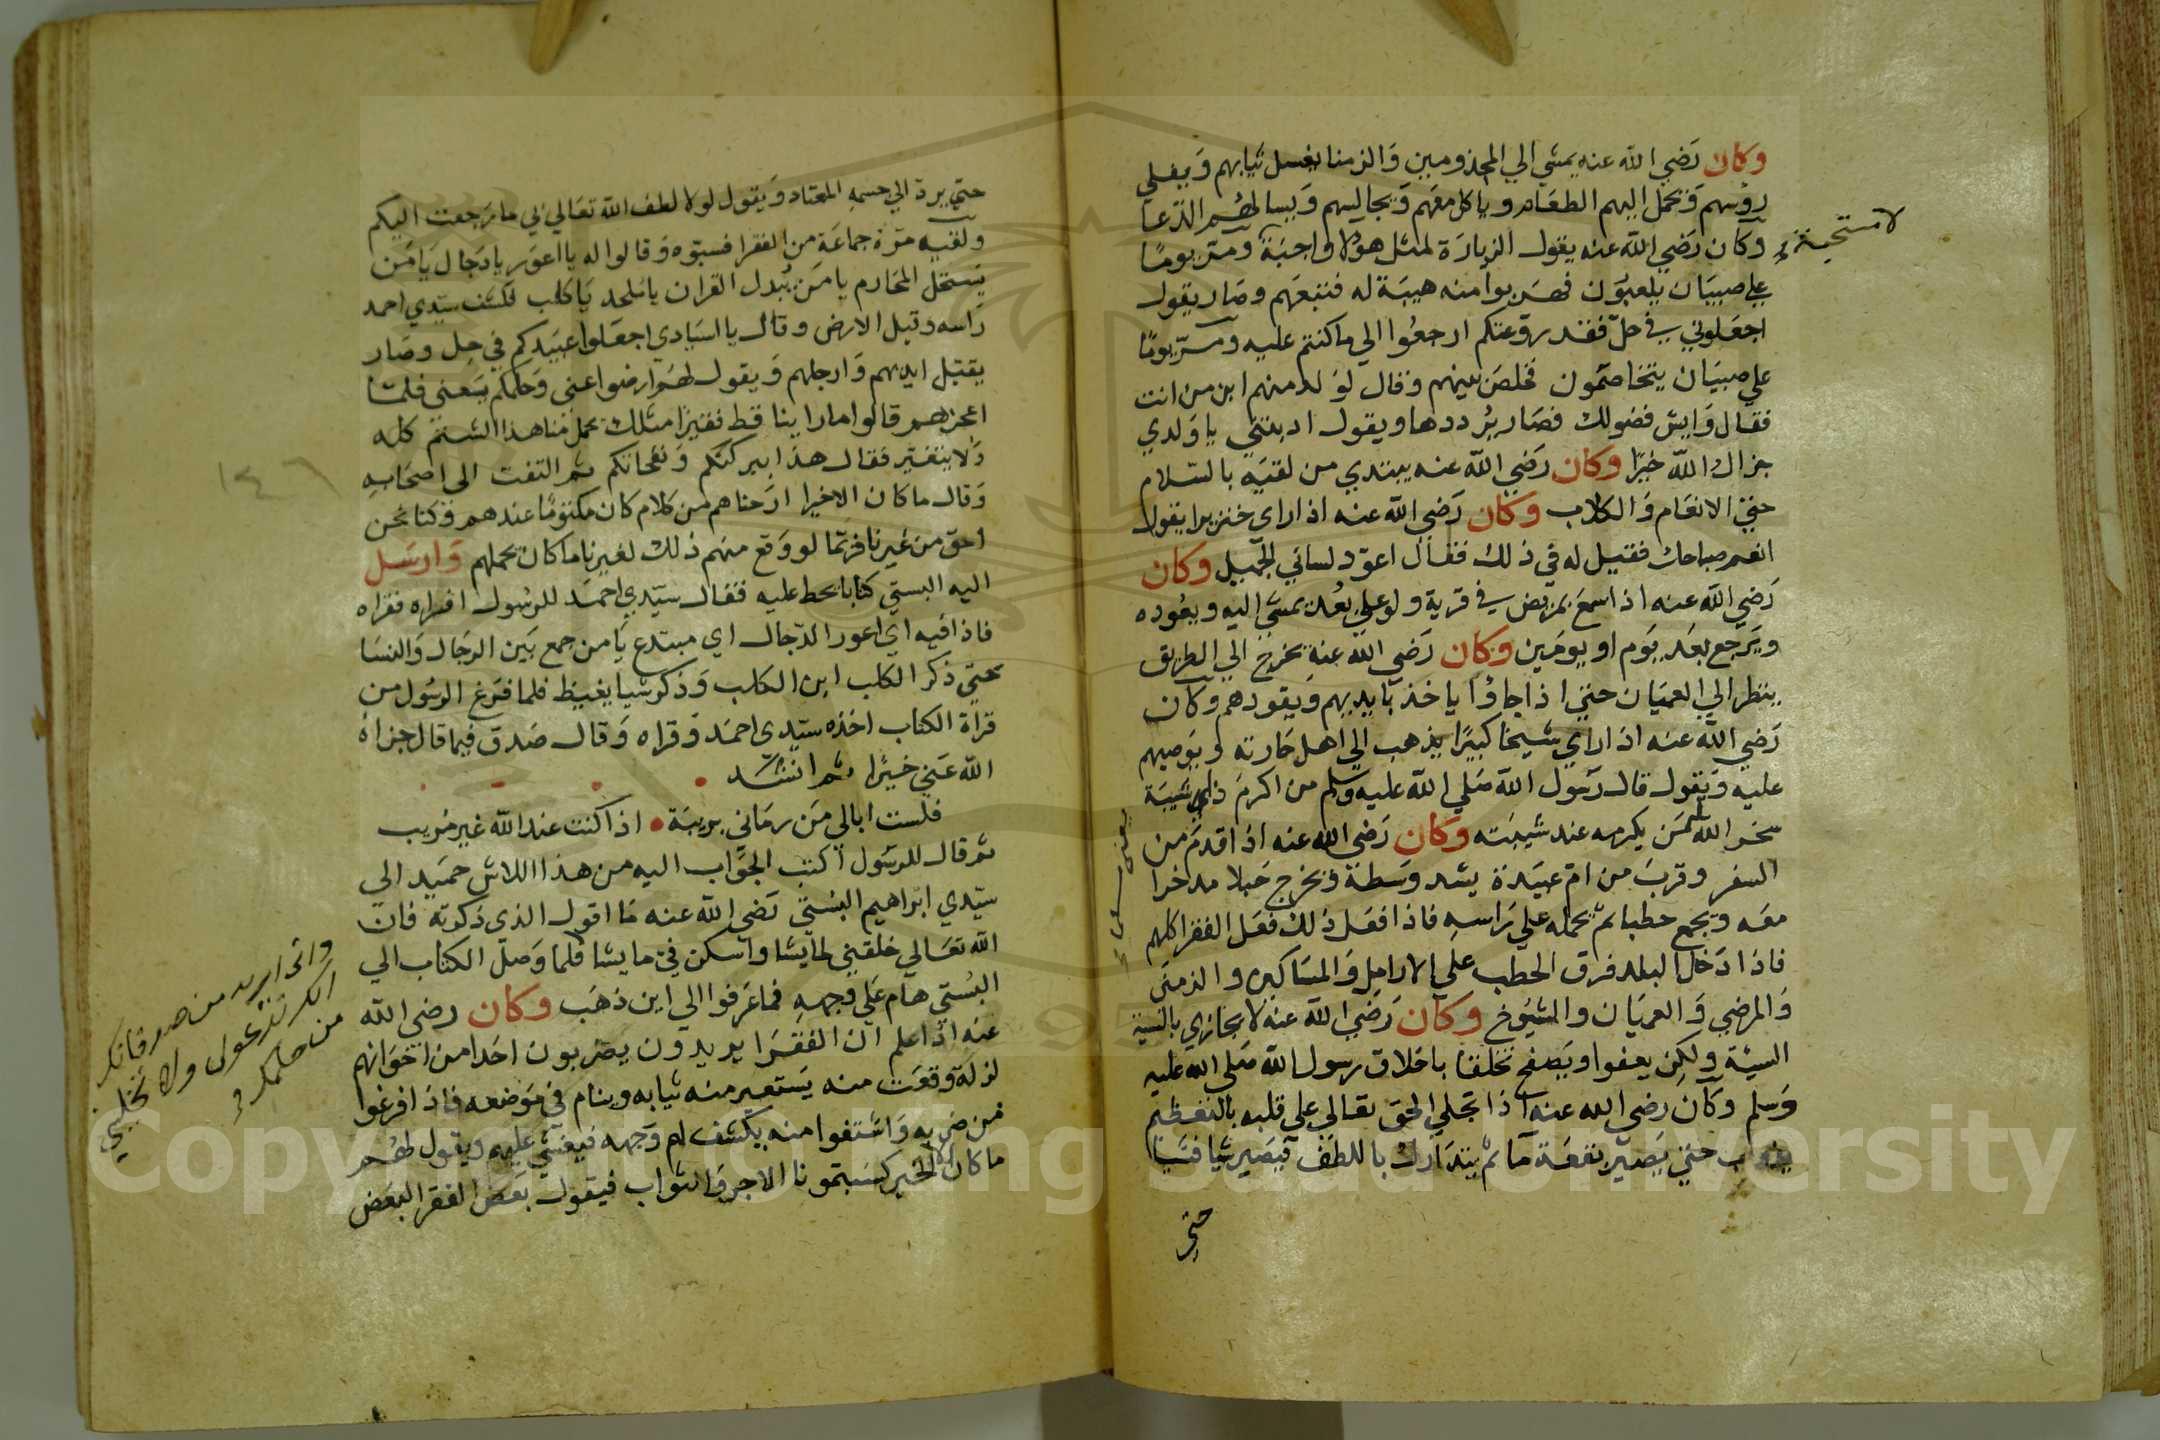 وكان رضي الله عنه يمشي الي المجذومين والزمنا يغسل ثيابهم ويفلي
روسهم ويحمل اليهم الطعام وياكل معهم ويجالسهم ويسالهم الدعا
وكان رضي الله عنه يقول الزيارة لمثل هولا واجبة ومر يوما
لا مستحبة
علي صبيان يلعبون فهربوا منه هيبة له فتبعهم وصار يقول
اجعلوني في حل فقد روعتكم ارجعوا الي ما كنتم عليه ومر يوما
علي صبيان يتخاصمون فخلص بينهم وقال لولد منهم ابن من انت
فقال وايش فضولك فصار يرددها ويقول ادبتني يا ولدي
جزاك الله خيرا وكان رضي الله عنه يبتدي من لقيه بالسلام
حتي الانعام والكلاب وكان رضي الله عنه اذا راي خنزيرا يقول
انعم صباحا فقيل له في ذلك فقال اعود لساني الجميل وكان
رضي الله عنه اذا سمع بمريض في قرية ولو علي بعد يمشي اليه ويعوده
ويرجع بعد يوم او يومين وكان رضي الله عنه يخرج الي الطريق
ينتظر الي العميان حتي اذا جاوا ياخذ بايديهم ويقودهم وكان
رضي الله عنه اذا راي شيخا كبيرا يذهب الي اهل حارته ويوصيهم
عليه ويقول قال رسول الله صلي الله عليه وسلم من اكرم ذا شيبة
سخر الله له من يكرمه عند شيبته وكان رضي الله عنه اذا قدم من
السفر وقرب من ام عبيدة يشد وسطه ويخرج حبلا مدخرا
معه ويجمع حطبا ثم يحمله علي راسه فاذا فعل ذلك فعل الفقرا كلهم
فاذا دخل البلد فرق الحطب علي الارامل والمساكين والزمني
والمرضي والعميان والشيوخ وكان رضي الله عنه لا يجازي بالسيئة
السيئة ولكن يعفوا ويصفح تخلقا باخلاق رسول الله صلي الله عليه
وسلم وكان رضي الله عنه اذا تجلي الحق تعالي علي قلبه بالتعظيم
يذوب حتي يصير بقعة ما ثم يتدارك باللطف فيصير شيا فشيا
حتي
حتي يرد الي جسمه المعتاد ويقول لولا لطف الله تعالي بي ما رجعت اليكم
ولقيه مرة جماعة من الفقرا فسبوه وقالوا له يا اعور يا دجال يا من
يستحل المحارم يا من يبدل القران يا ملحد يا كلب فكشف سيدي احمد
راسه وقبل الارض وقال يا اسيادي اجعلوا عبيدكم في حل وصار
يقبل ايديهم وارجلهم ويقول لهم ارضوا عني وحلمكم يسعني فلما
اعجزهم قالوا ما راينا قط فقيرا مثلك يحمل منا هذا الشتم كله
ولا يتغير فقال هذا ببركتكم ونفحاتكم ثم التفت الي اصحابه
وقال ما كان الا خيرا ارحناهم من كلام كان مكتوما عندهم وكنا نحن
احق من غيرنا فربما لو وقع منهم ذلك لغيرنا ما كان يحملهم وارسل
اليه البستي كتابا يحط عليه فقال سيدي احمد للرسول اقراه فقراه
فاذا فيه اي اعور الدجال اي مبتدع يا من جمع بين الرجال والنسا
حتي ذكر الكلب ابن الكلب وذكر شيا يغيظ فلما فرغ الرسول من
قراة الكتاب اخذه سيدي احمد وقراه وقال صدق فيما قال جزاه
الله عني خيرا ثم انشد
فلست ابالي من رماني بريبة اذا كنت عند الله غير مريب
ثم قال للرسول اكتب الجواب اليه من هذا اللاش حميد الي
سيدي ابراهيم البستي رضي الله عنه ما اقول الذي ذكرته فان
الله تعالي خلقني لما يشا واسكن في ما يشا فلما وصل الكتاب الي
واني اريد من صدقاتكم
انكم تدعولي ولا تخليني
من حلمكم
البستي هام علي وجهه فما عرفوا الي اين ذهب وكان رضي الله
عنه اذا علم ان الفقرا يريدون يضربون احدا من اخوانهم
لزلة وقعت منه يستعير منه ثيابه وينام في موضعه فاذا فرغوا
من ضربه واشتفوا منه يكشف لهم وجهه فيغشي عليهم ويقول لهم
ما كان الا الخير كسبتمونا الاجر والثواب فيقول بعض الفقرا لبعض
١٤٦
Copyright © King Saud University